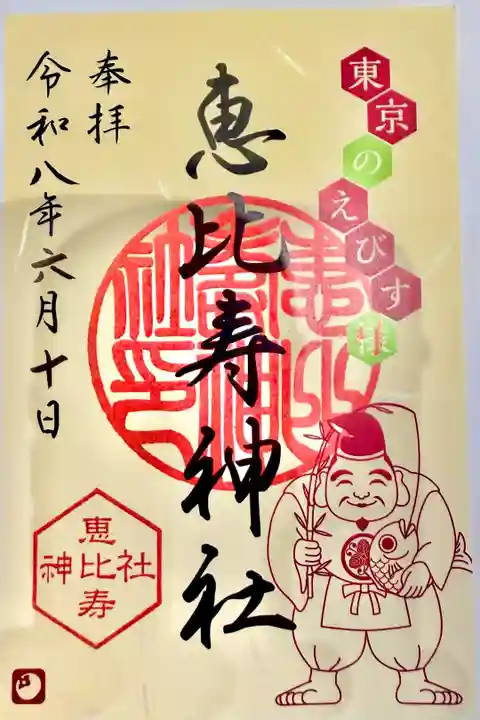 東京のえびす様
恵比寿神社
奉拝
令和八年六月十日
恵比寿神社